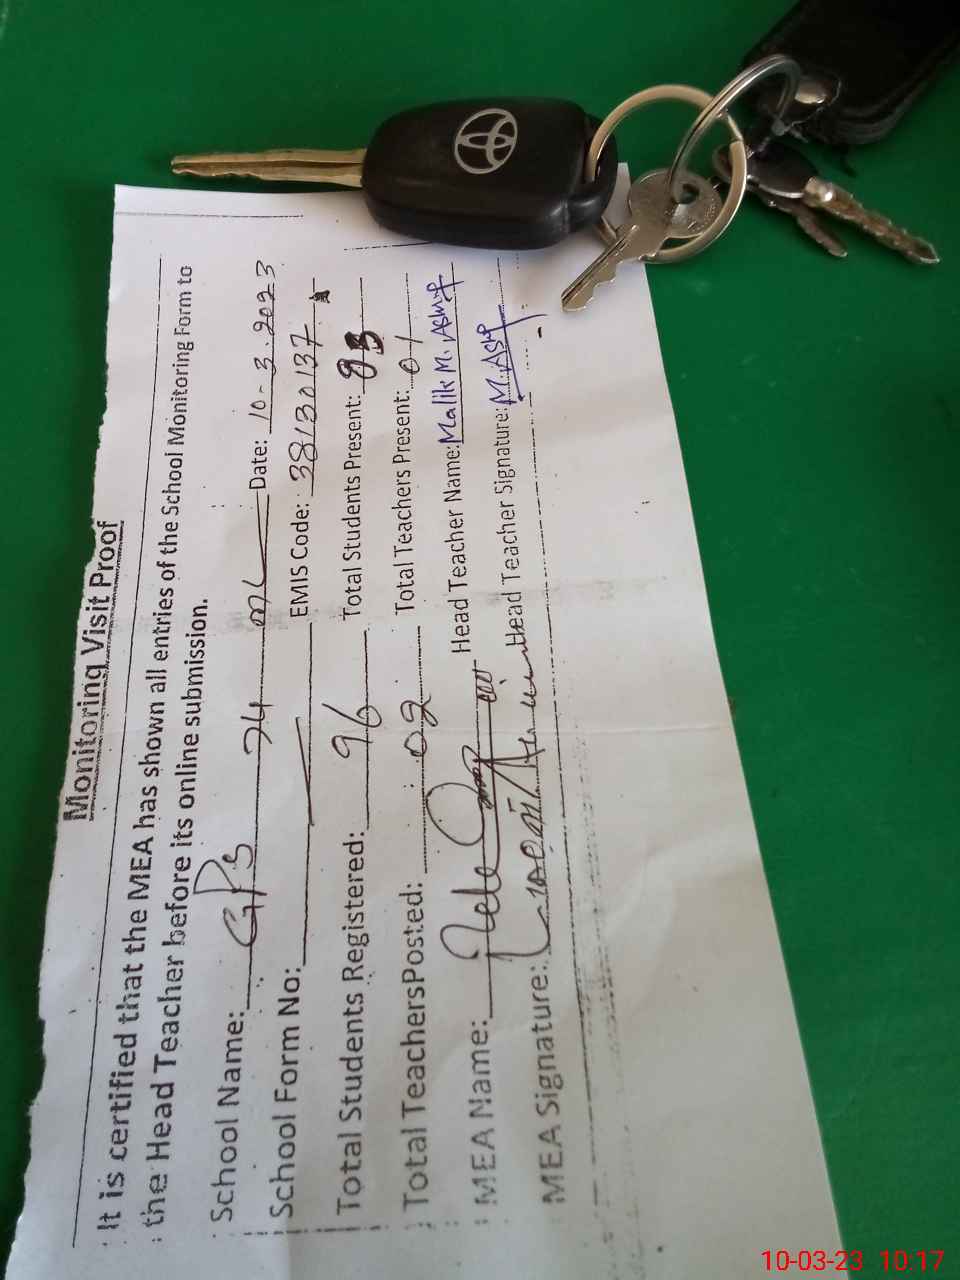 Monitoring Visit Proof
It is certified that the MEA has shown all entries of the School Monitoring Form to
the Head Teacher before its online submission.
School Name: GPS 74 ML Date: 10-3.2023
School Form No: EMIS Code: 38130137
Total Students Registered: 96 Total Students Present:
Total TeachersPosted: 02 Total Teachers Present: 01
MEA Name: Head Teacher Name: Malik M. Ashrf
MEA Signature: Head Teacher Signature: M. Ashf
10-03-23 10:17